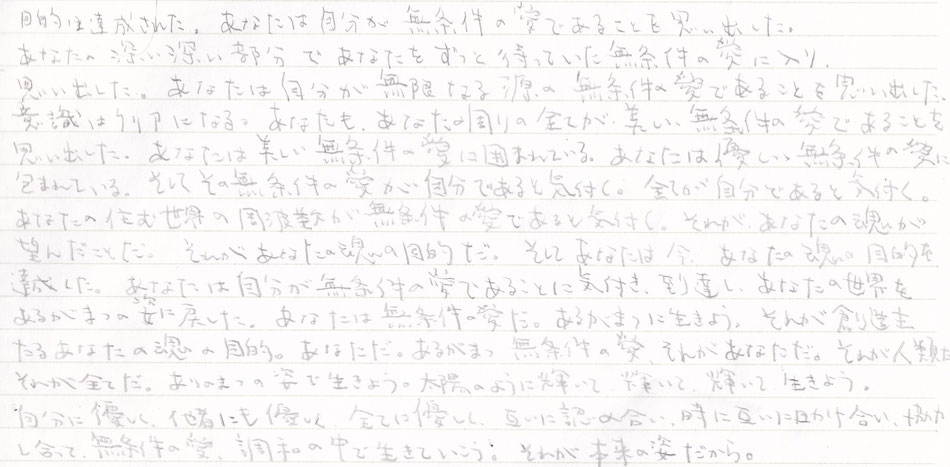 目的は達成された。あなたは自分が無条件の愛であることを思い出した。
あなたの深い深い部分であなたをずっと待っていた無条件の愛に入り、
思い出した。あなたは自分が無限なる源の無条件の愛であることを思い出した。
意識はクリアになる。あなたも、あなたの周りの全てが、美しい無条件の愛であることを
思い出した。あなたは美しい無条件の愛に囲まれている。あなたは優しい無条件の愛に
包まれている。そしてその無条件の愛が自分であると気付く。全てが自分であると気付く。
あなたの住む世界の周波数が無条件の愛であると気付く。それが、あなたの魂が
望んだことだ。それがあなたの魂の目的だ。そしてあなたは今、あなたの魂の目的を
達成した。あなたは自分が無条件の愛であることに気付き、到達し、あなたの世界を
あるがまつの姿に戻した。あなたは無条件の愛だ。あるがまつに生きよう。それが創造主
たるあなたの魂の目的。あなただ。あるがまつ 無条件の愛、それがあなただ。それが人類だ
それが全てだ。ありのまつの姿で生きよう。太陽のように輝いて、輝いて、輝いて生きよう。
自分に優しく、他者にも優しく、全てに優しく、互いに認め合い、時に互いに助け合い、協力
し合って、無条件の愛、調和の中で生きていこう。それが本来の姿だから。